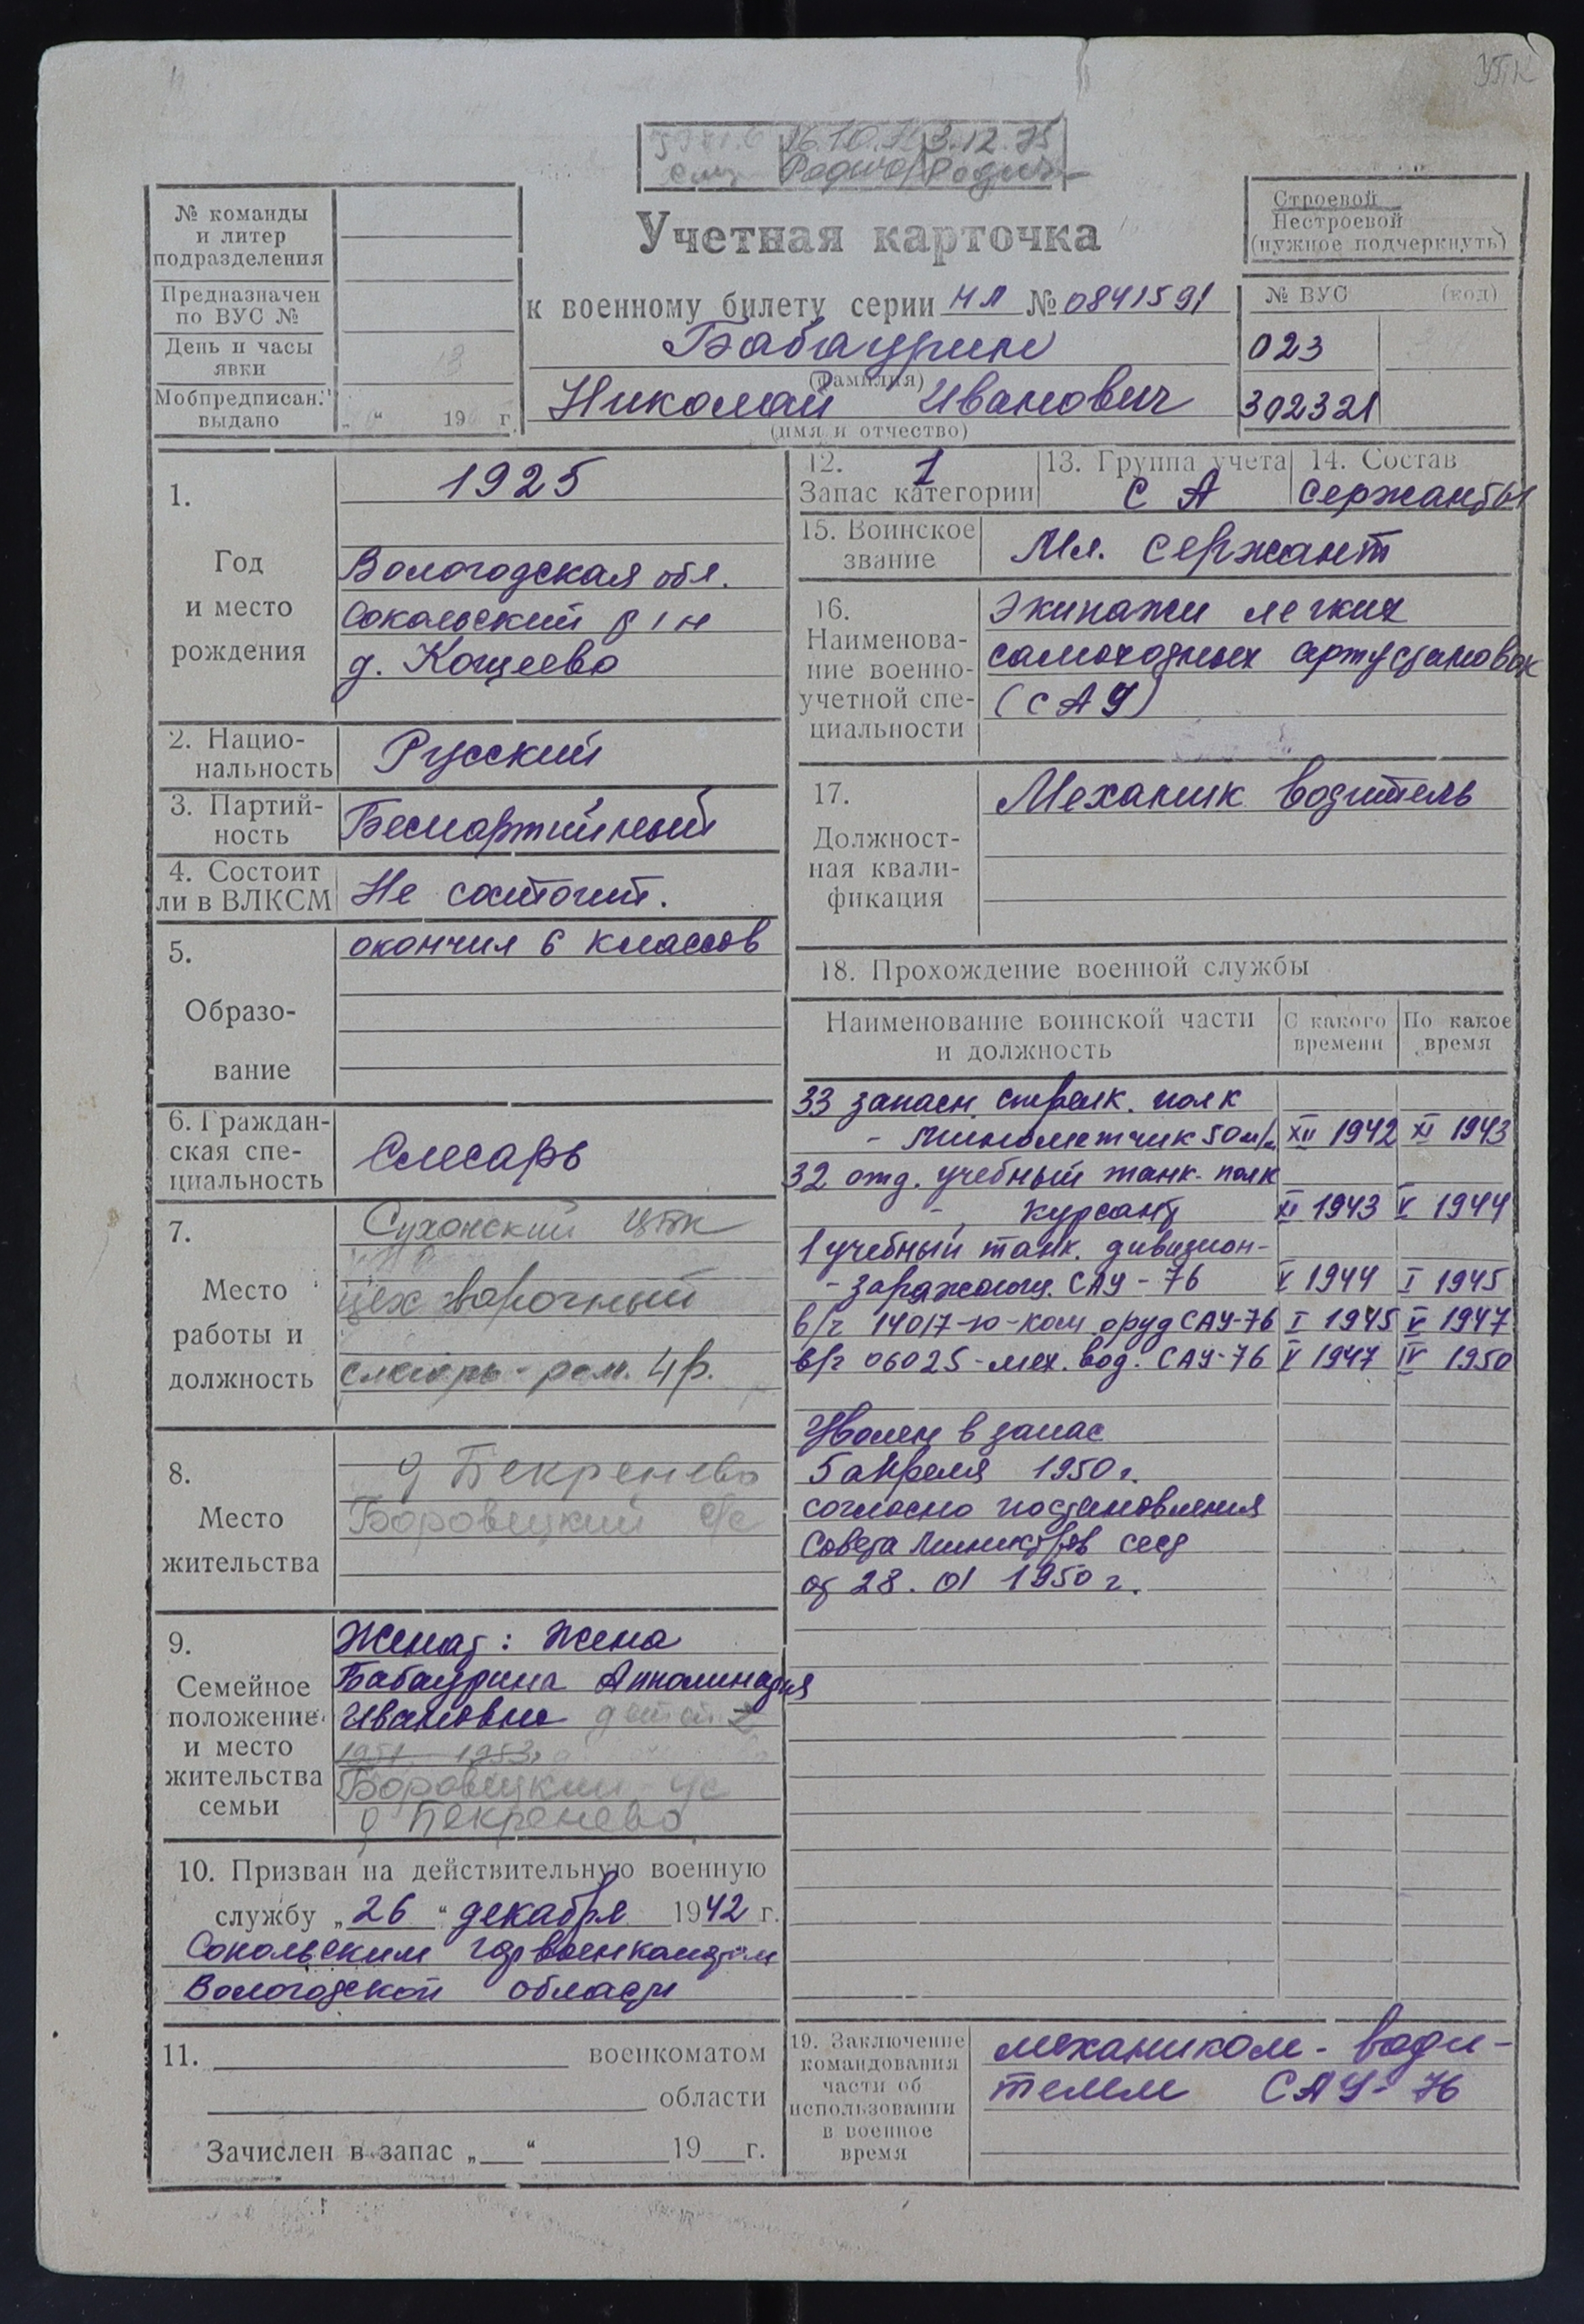 УПК
26.10.
3.12.75
№ команды
и литер
подразделения
Предназначен
по ВУС №
День и часы
явки
Мобпредписан.
выдано
„ “ 19 г.
Учетная карточка
к военному билету серии НЛ № 0841591
Бабаурин
(фамилия)
Николай Иванович
(имя и отчество)
Строевой
Нестроевой
(нужное подчеркнуть)
№ ВУС (код)
023
302321
1.
Год
и место
рождения
1925
Вологодская обл.
Сокольский р/н
д. Кощеево
2. Нацио-
нальность
Русский
3. Партий-
ность
Беспартийный
4. Состоит
ли в ВЛКСМ
Не состоит.
5.
Образо-
вание
окончил 6 классов
6. Граждан-
ская спе-
циальность
Слесарь
7.
Место
работы и
должность
Сухонский ЦБК
цех варочный
слесарь-рем. 4р.
8.
Место
жительства
д Бекренево
Боровецкий с/с
9.
Семейное
положение
и место
жительства
семьи
Женат: жена
Бабаурина Апполинария
Ивановна детей 2
1951 1953
Боровецкий с/с
д Бекренево
10. Призван на действительную военную
службу „26“ декабря 1942 г.
Сокольским горвоенкоматом
Вологодской области
11. военкоматом
области
Зачислен в запас „ “ 19 г.
12. 1
Запас категории
13. Группа учета
СА
14. Состав
сержанты
15. Воинское
звание
Мл. сержант
16.
Наименова-
ние военно-
учетной спе-
циальности
Экипажи легких
самоходных артустановок
(САУ)
17.
Должност-
ная квали-
фикация
Механик водитель
18. Прохождение военной службы
Наименование воинской части
и должность
С какого
времени
По какое
время
33 запасн. стрелк. полк
- минометчик 50 м/м XII 1942 XI 1943
32 отд. учебный танк. полк
- курсант XI 1943 V 1944
1 учебный танк. дивизион-
- заряжающ. САУ-76 V 1944 I 1945
в/ч 14017-ю-ком. оруд САУ-76 I 1945 V 1947
в/ч 06025-мех. вод. САУ-76 V 1947 IV 1950
Уволен в запас
5 апреля 1950 г.
согласно постановления
Совета Министров СССР
от 28.01 1950 г.
19. Заключение
командования
части об
использовании
в военное
время
механиком-води-
телем САУ-76